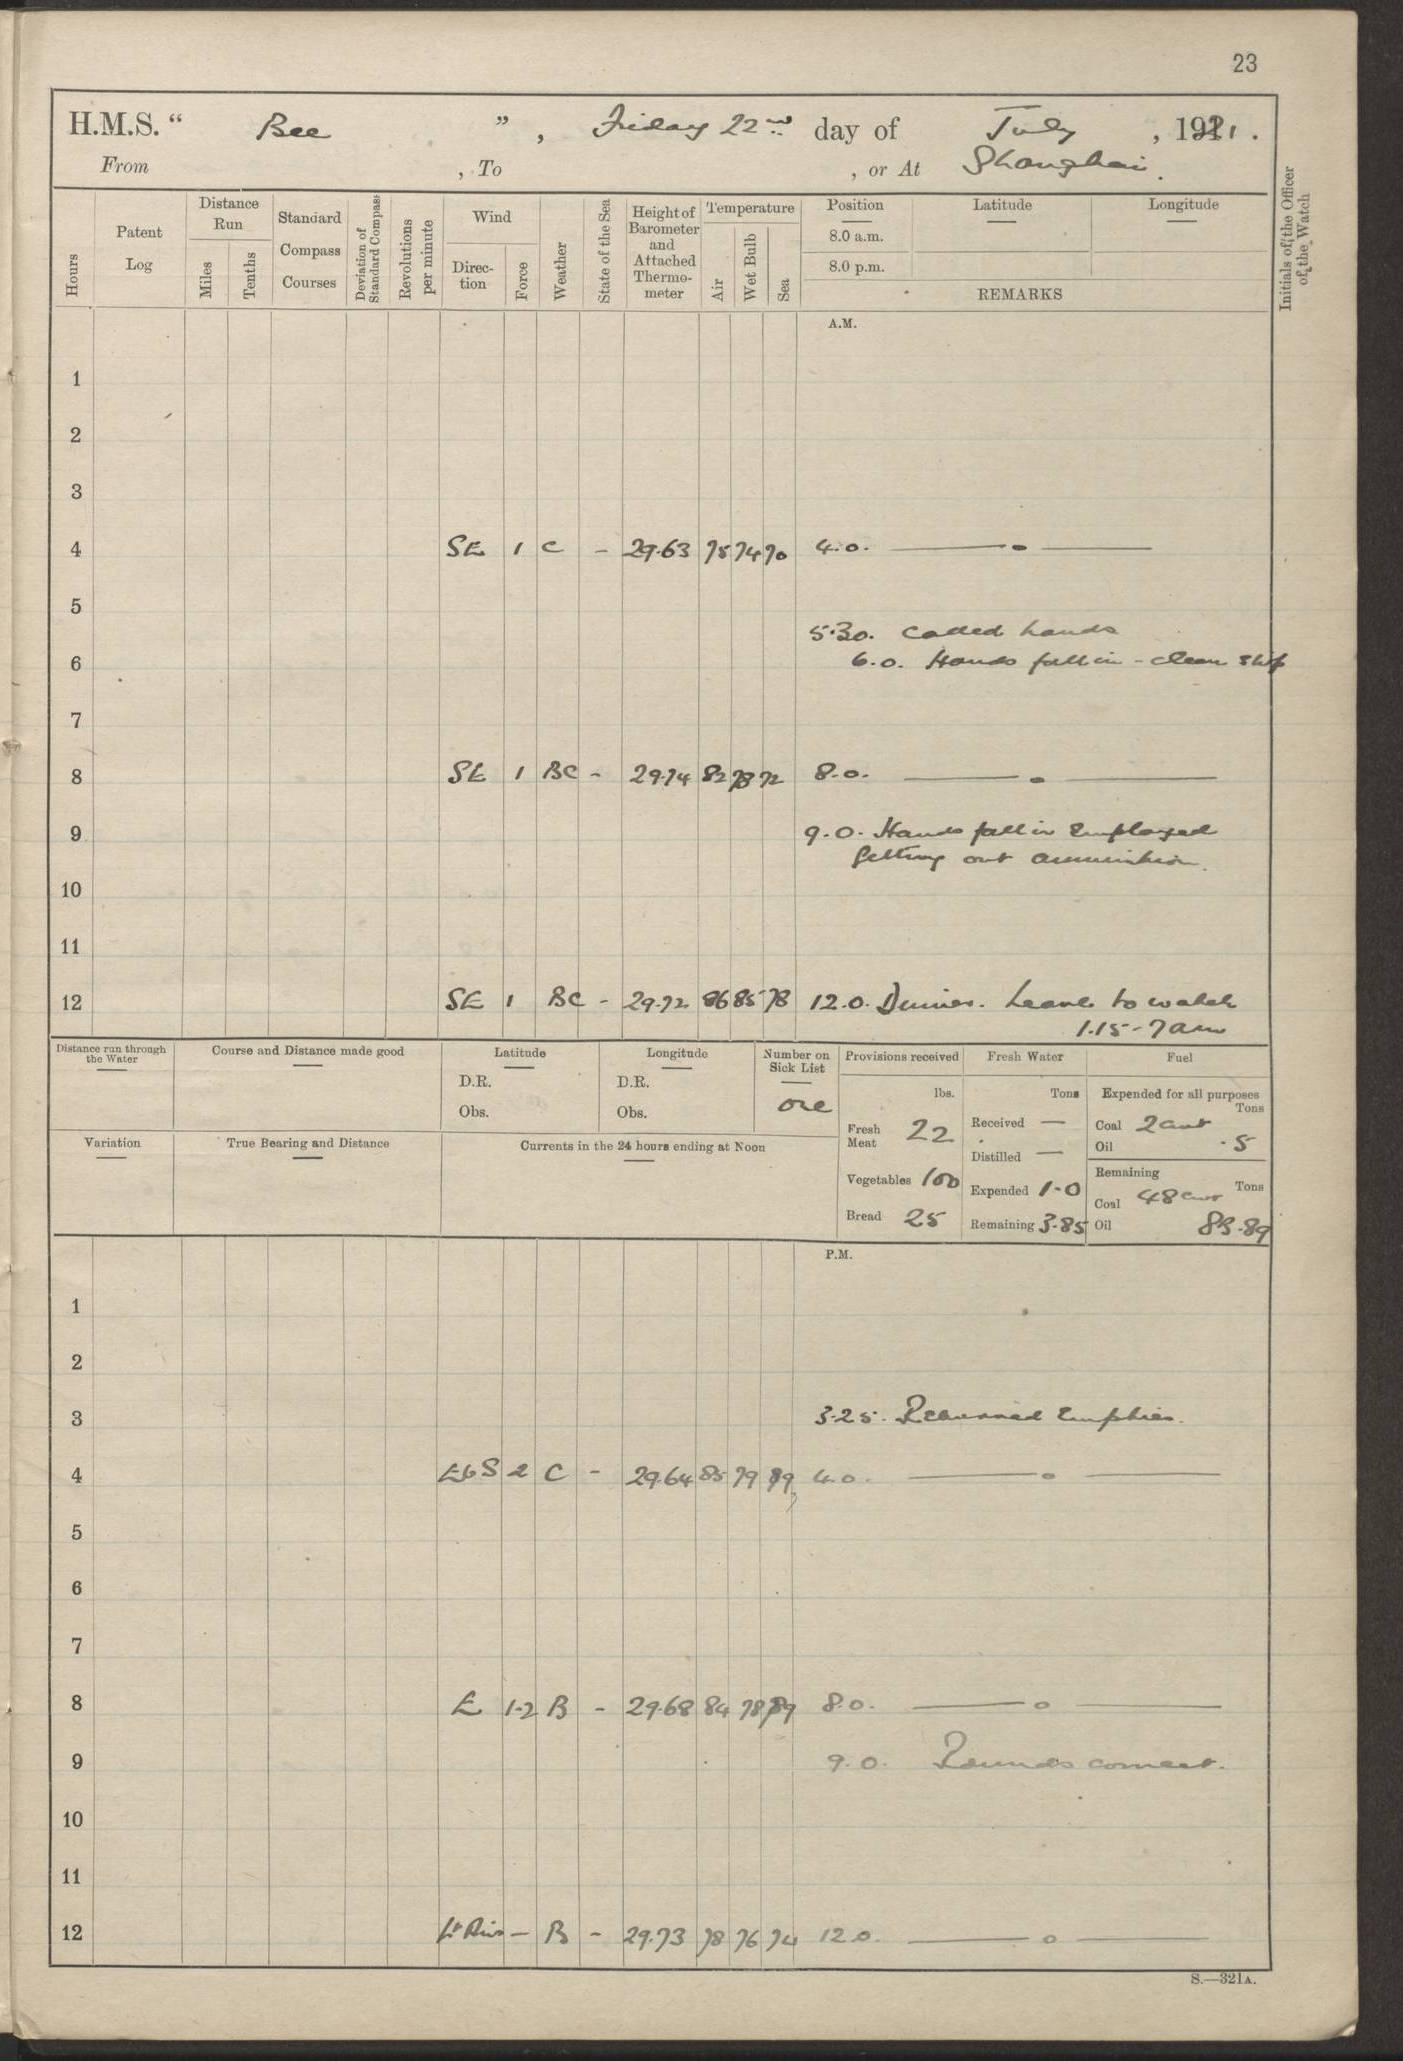 23
H.M.S. " Bee ", Friday 22nd day of July, 1921.
From , To , or At Shanghai.
Hours
Patent Log
Distance Run
Miles
Tenths
Standard Compass Courses
Deviation of Standard Compass
Revolutions per minute
Wind
Direction
Force
Weather
State of the Sea
Height of Barometer and Attached Thermometer
Temperature
Air
Wet Bulb
Sea
Position
8.0 a.m.
8.0 p.m.
Latitude
Longitude
REMARKS
Initials of the Officer of the Watch
A.M.
1
2
3
4 SE 1 C - 29.63 75 74 70 4.0. —
5
5.30. Called hands
6 6.0. Hands fall in - clean ship
7
8 SE 1 BC - 29.74 82 78 72 8.0. —
9 9.0. Hands fall in Employed
getting out ammunition.
10
11
12 SE 1 BC - 29.72 86 85 78 12.0. Dinner. Leave to watch
1.15 - 7 am
Distance run through the Water
Course and Distance made good
Latitude
D.R.
Obs.
Longitude
D.R.
Obs.
Number on Sick List
one
Variation
True Bearing and Distance
Currents in the 24 hours ending at Noon
Provisions received
lbs.
Fresh Meat 22
Vegetables 100
Bread 25
Fresh Water
Tons
Received —
Distilled —
Expended 1.0
Remaining 3.85
Fuel
Expended for all purposes
Tons
Coal 2 cwt
Oil .5
Remaining
Tons
Coal 48 cwt
Oil 83.89
P.M.
1
2
3 3.25. Returned Empties.
4 EbS 2 C - 29.64 85 79 89 4.0. —
5
6
7
8 E 1-2 B - 29.68 84 78 89 8.0. —
9 9.0. Rounds correct.
10
11
12 Lt Airs - B - 29.73 78 76 74 12.0. —
S.—321A.